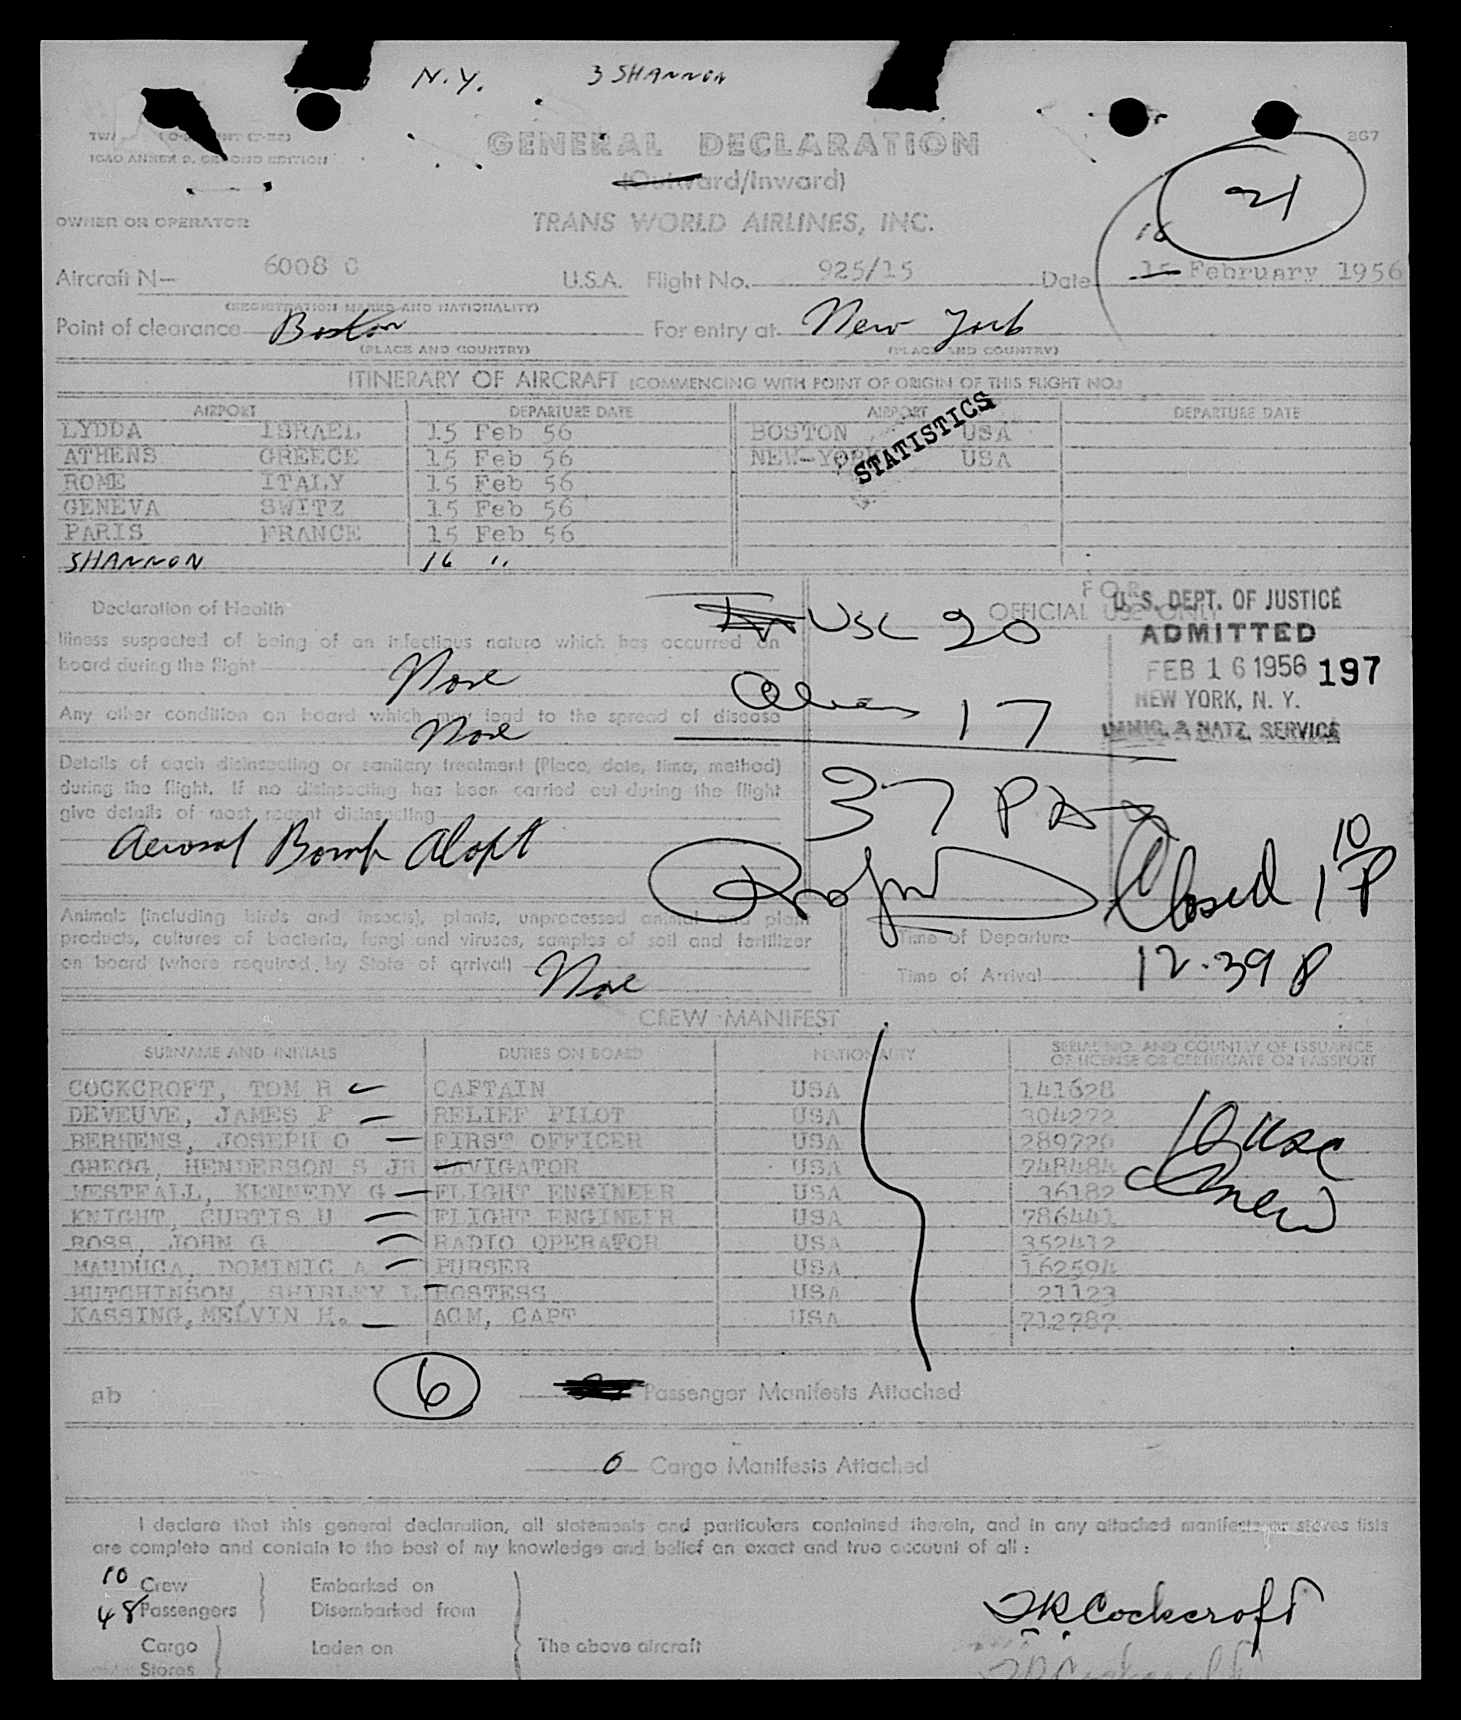 N.Y. 3 SHANNON
GENERAL DECLARATION 267
ICAO ANNEX 9, SECOND EDITION
(Outward/Inward)
21
OWNER OR OPERATOR TRANS WORLD AIRLINES, INC.
16
Aircraft N— 6008 C U.S.A. Flight No. 925/15 Date 15 February 1956
(REGISTRATION MARKS AND NATIONALITY)
Point of clearance Boston For entry at New York
(PLACE AND COUNTRY) (PLACE AND COUNTRY)
ITINERARY OF AIRCRAFT (COMMENCING WITH POINT OF ORIGIN OF THIS FLIGHT NO.)
AIRPORT DEPARTURE DATE AIRPORT DEPARTURE DATE
LYDDA ISRAEL 15 Feb 56 BOSTON USA
ATHENS GREECE 15 Feb 56 NEW-YORK USA
STATISTICS
ROME ITALY 15 Feb 56
GENEVA SWITZ 15 Feb 56
PARIS FRANCE 15 Feb 56
SHANNON 16 "
Declaration of Health
FOR
OFFICIAL USE ONLY
U. S. DEPT. OF JUSTICE
ADMITTED
FEB 16 1956 197
NEW YORK, N. Y.
IMMIG. & NATZ. SERVICE
USC 20
Aliens 17
37 Pax
Illness suspected of being of an infectious nature which has occurred on
board during the flight None
Any other condition on board which may lead to the spread of disease
None
Details of each disinsecting or sanitary treatment (Place, date, time, method)
during the flight. If no disinsecting has been carried out during the flight
give details of most recent disinsecting
Aerosol Bomb Aloft
Closed 1 10 P
Animals (including birds and insects), plants, unprocessed animal and plant
products, cultures of bacteria, fungi and viruses, samples of soil and fertilizer
on board (where required, by State of arrival) None
Time of Departure
Time of Arrival 12.39 P
CREW MANIFEST
SURNAME AND INITIALS DUTIES ON BOARD NATIONALITY SERIAL NO. AND COUNTRY OF ISSUANCE
OF LICENSE OR CERTIFICATE OR PASSPORT
COCKCROFT, TOM R CAPTAIN USA 141628
DEVEUVE, JAMES P RELIEF PILOT USA 304272
BERHENS, JOSEPH O FIRST OFFICER USA 289726
GREGG, HENDERSON S JR NAVIGATOR USA 748484
WESTFALL, KENNEDY G FLIGHT ENGINEER USA 36182
KNIGHT, CURTIS U FLIGHT ENGINEER USA 786441
ROSS, JOHN G RADIO OPERATOR USA 352412
MAUDUCA, DOMINIC A PURSER USA 162594
HUTCHINSON, SHIRLEY L HOSTESS USA 21123
KASSING, MELVIN H. ACM, CAPT USA 712787
10 USC
Crew
ab 6 Passenger Manifests Attached
0 Cargo Manifests Attached
I declare that this general declaration, all statements and particulars contained therein, and in any attached manifests or stores lists
are complete and contain to the best of my knowledge and belief an exact and true account of all :
10 Crew Embarked on
48 Passengers Disembarked from
Cargo Laden on The above aircraft
Stores
T R Cockcroft